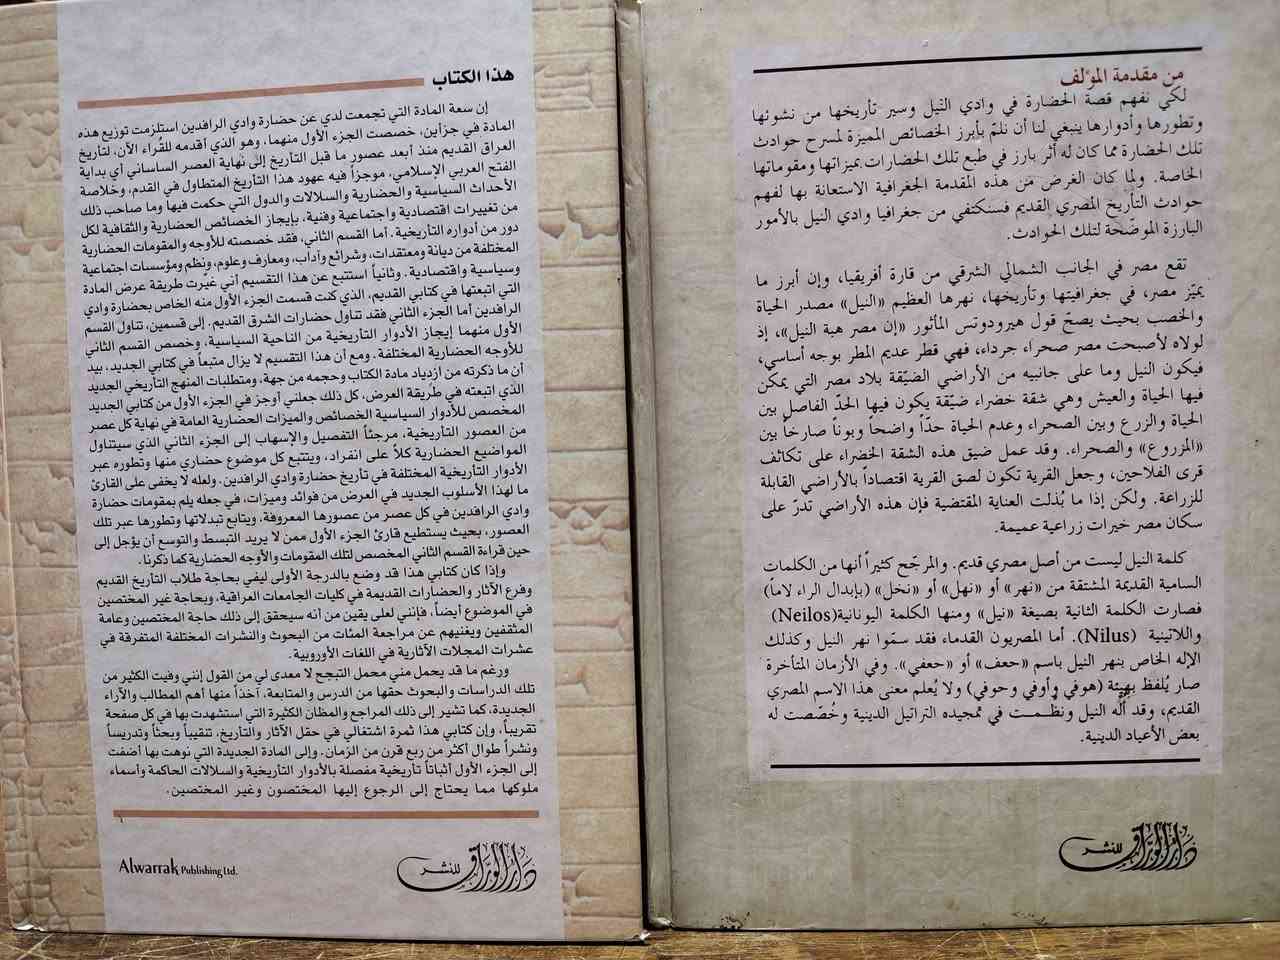 من مقدمة المؤلف
لكي نفهم قصة الحضارة في وادي النيل وسير تأريخها من نشوئها
وتطورها وأدوارها ينبغي لنا أن نلمّ بأبرز الخصائص المميزة لمسرح حوادث
تلك الحضارة مما كان له أثر بارز في طبع تلك الحضارات بميزاتها ومقوماتها
الخاصة. ولما كان الغرض من هذه المقدمة الجغرافية الاستعانة بها لفهم
حوادث التأريخ المصري القديم فسنكتفي من جغرافيا وادي النيل بالأمور
البارزة الموضّحة لتلك الحوادث.
تقع مصر في الجانب الشمالي الشرقي من قارة أفريقيا، وإن أبرز ما
يميّز مصر، في جغرافيتها وتأريخها، نهرها العظيم «النيل» مصدر الحياة
والخصب بحيث يصحّ قول هيرودوتس المأثور «إن مصر هبة النيل»، إذ
لولاه لأصبحت مصر صحراء جرداء، فهي قطر عديم المطر بوجه أساسي،
فيكون النيل وما على جانبيه من الأراضي الضيّقة بلاد مصر التي يمكن
فيها الحياة والعيش وهي شقة خضراء ضيّقة يكون فيها الحدّ الفاصل بين
الحياة والزرع وبين الصحراء وعدم الحياة حدّاً واضحاً وبوناً صارخاً بين
«المزروع» والصحراء. وقد عمل ضيق هذه الشقة الخضراء على تكاثف
قرى الفلاحين، وجعل القرية تكون لصق القرية اقتصاداً بالأراضي القابلة
للزراعة. ولكن إذا ما بُذلت العناية المقتضية فإن هذه الأراضي تدرّ على
سكان مصر خيرات زراعية عميمة.
كلمة النيل ليست من أصل مصري قديم. والمرجّح كثيراً أنها من الكلمات
السامية القديمة المشتقة من «نهر» أو «نهل» أو «نخل» (بإبدال الراء لاماً)
فصارت الكلمة الثانية بصيغة «نيل» ومنها الكلمة اليونانية(Neilos)
واللاتينية (Nilus). أما المصريون القدماء فقد سمّوا نهر النيل وكذلك
الإله الخاص بنهر النيل باسم «حعف» أو «حعفي». وفي الأزمان المتأخرة
صار يُلفظ بهيئة (هوفي وأوفي وحوفي) ولا يُعلم معنى هذا الاسم المصري
القديم، وقد ألّه النيل ونظمت في تمجيده التراتيل الدينية وخُصّصت له
بعض الأعياد الدينية.
دار الورّاق للنشر
هذا الكتاب
إن سعة المادة التي تجمعت لدي عن حضارة وادي الرافدين استلزمت توزيع هذه
المادة في جزأين، خصصت الجزء الأول منهما، وهو الذي أقدمه للقُراء الآن، لتأريخ
العراق القديم منذ أبعد عصور ما قبل التأريخ إلى نهاية العصر الساساني أي بداية
الفتح العربي الإسلامي، موجزاً فيه عهود هذا التأريخ المتطاول في القدم، وخلاصة
الأحداث السياسية والحضارية والسلالات والدول التي حكمت فيها وما صاحب ذلك
من تغييرات اقتصادية واجتماعية وفنية، بإيجاز الخصائص الحضارية والثقافية لكل
دور من أدواره التأريخية. أما القسم الثاني، فقد خصصته للأوجه والمقومات الحضارية
المختلفة من ديانة ومعتقدات، وشرائع وآداب، ومعارف وعلوم، ونظم ومؤسسات اجتماعية
وسياسية واقتصادية. وثانياً استتبع عن هذا التقسيم أني غيرت طريقة عرض المادة
التي اتبعتها في كتابي القديم، الذي كنت قسمت الجزء الأول منه الخاص بحضارة وادي
الرافدين أما الجزء الثاني فقد تناول حضارات الشرق القديم. إلى قسمين، تناول القسم
الأول منهما إيجاز الأدوار التأريخية من الناحية السياسية، وخصص القسم الثاني
للأوجه الحضارية المختلفة. ومع أن هذا التقسيم لا يزال متبعاً في كتابي الجديد، بيد
أن ما ذكرته من ازدياد مادة الكتاب وحجمه من جهة، ومتطلبات المنهج التأريخي الجديد
الذي اتبعته في طريقة العرض، كل ذلك جعلني أوجز في الجزء الأول من كتابي الجديد
المخصص للأدوار السياسية الخصائص والميزات الحضارية العامة في نهاية كل عصر
من العصور التأريخية، مرجئاً التفصيل والإسهاب إلى الجزء الثاني الذي سيتناول
المواضيع الحضارية كلاً على انفراد، ويتتبع كل موضوع حضاري منها وتطوره عبر
الأدوار التأريخية المختلفة في تأريخ حضارة وادي الرافدين. ولعله لا يخفى على القارئ
ما لهذا الأسلوب الجديد في العرض من فوائد وميزات، في جعله يلم بمقومات حضارة
وادي الرافدين في كل عصر من عصورها المعروفة، ويتابع تبدلاتها وتطورها عبر تلك
العصور، بحيث يستطيع قارئ الجزء الأول ممن لا يريد التبسط والتوسع أن يؤجل إلى
حين قراءة القسم الثاني المخصص لتلك المقومات والأوجه الحضارية كما ذكرنا.
وإذا كان كتابي هذا قد وضع بالدرجة الأولى ليفي بحاجة طلاب التأريخ القديم
وفرع الآثار والحضارات القديمة في كليات الجامعات العراقية، وبحاجة غير المختصين
في الموضوع أيضاً، فإنني لعلى يقين من أنه سيحقق إلى ذلك حاجة المختصين وعامة
المثقفين ويغنيهم عن مراجعة المئات من البحوث والنشرات المختلفة المتفرقة في
عشرات المجلات الآثارية في اللغات الأوروبية.
ورغم ما قد يحمل مني محمل التبجح لا معدى لي من القول إنني وفيت الكثير من
تلك الدراسات والبحوث حقها من الدرس والمتابعة، آخذاً منها أهم المطالب والآراء
الجديدة، كما تشير إلى ذلك المراجع والمظان الكثيرة التي استشهدت بها في كل صفحة
تقريباً، وإن كتابي هذا ثمرة اشتغالي في حقل الآثار والتأريخ، تنقيباً وبحثاً وتدريساً
ونشراً طوال أكثر من ربع قرن من الزمان. وإلى المادة الجديدة التي نوهت بها أضفت
إلى الجزء الأول أثباتاً تأريخية مفصلة بالأدوار التأريخية والسلالات الحاكمة وأسماء
ملوكها مما يحتاج إلى الرجوع إليها المختصون وغير المختصين.
دار الورّاق للنشر
Alwarrak Publishing Ltd.